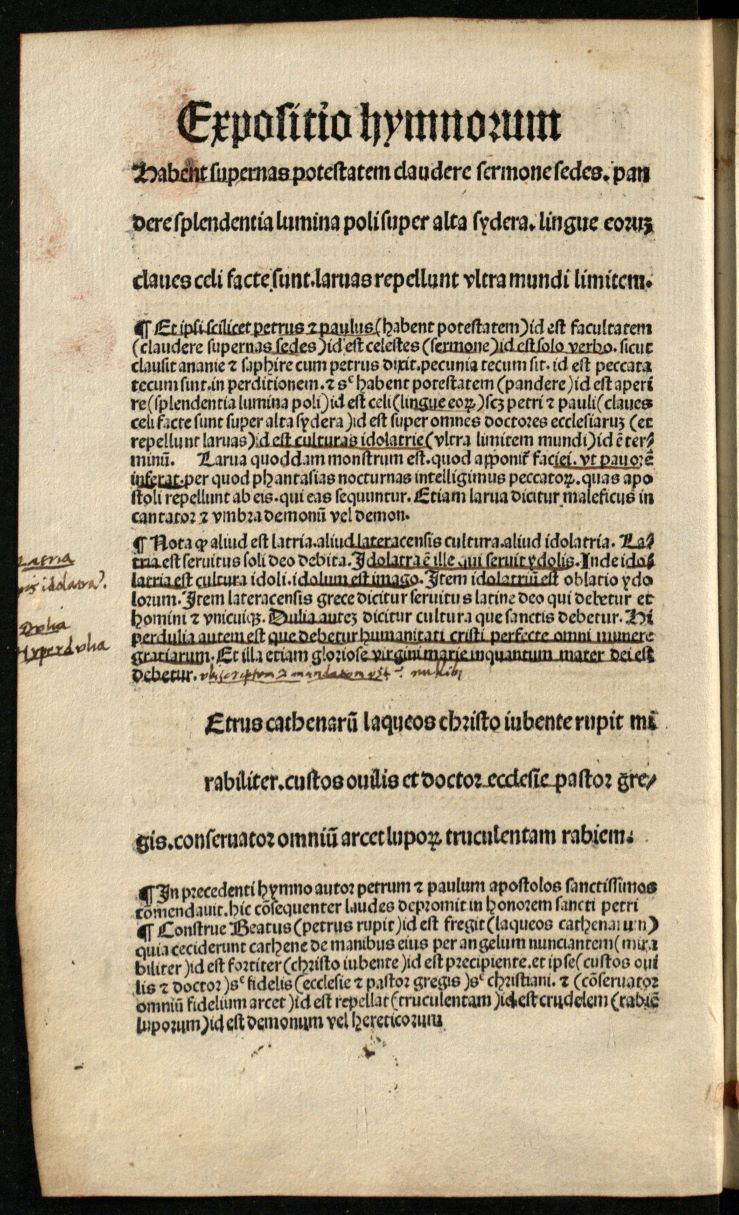 Expositio hymnorum
Habent supernas potestatem claudere sermone sedes. pan
dere splendentia lumina poli super alta sydera. lingue eoruꝫ
claues celi facte sunt. laruas repellunt vltra mundi limitem.
¶ Et ipsi scilicet petrus ⁊ paulus (habent potestatem) id est facultatem
(claudere supernas sedes) id est celestes (sermone) id est solo verbo. sicut
clausit ananie ⁊ saphire cum petrus dixit. pecunia tecum sit. id est peccata
tecum sint. in perditionem. ⁊ sᶜ habent potestatem (pandere) id est aperi
re (splendentia lumina poli) id est celi (lingue eoꝝ) scꝫ petri ⁊ pauli (claues
celi facte sunt super alta sydera) id est super omnes doctores ecclesiaruꝫ (et
repellunt laruas) id est culturas idolatrie (vltra limitem mundi) id ē ter⸗
minū. Larua quoddam monstrum est. quod apponit faciei. vt pauorē
inferat. per quod phantasias nocturnas intelligimus peccatoꝝ. quas apo
stoli repellunt ab eis. qui eas sequuntur. Etiam larua dicitur maleficus in
cantator ⁊ vmbra demonū vel demon.
¶ Nota ꝙ aliud est latria. aliud lateracensis cultura. aliud idolatria. La⸗
tria est seruitus soli deo debita. Idolatra ē ille qui seruit ydolis. Inde ido⸗
latria est cultura idoli. idolum est imago. Item idolatriū est oblatio ydo
lorum. Item lateracensis grece dicitur seruitus latine deo qui debetur et
homini ⁊ vnicuiqꝫ. Dulia auteꝫ dicitur cultura que sanctis debetur. Hi
perdulia autem est que debetur humanitati cristi perfecte omni munere
gratiarum. Et illa etiam gloriose virgini marie inquantum mater dei est
debetur.
Latria
idolatra
Dulia
Hyperdulia
Etrus cathenarū laqueos christo iubente rupit mi
rabiliter. custos ouilis et doctor ecclesie pastor gre⸗
gis. conseruator omniū arcet lupoꝝ truculentam rabiem.
¶ In precedenti hymno autor petrum ⁊ paulum apostolos sanctissimos
cōmendauit. hic cōsequenter laudes depromit in honorem sancti petri
¶ Construe Beatus (petrus rupit) id est fregit (laqueos cathenarum)
quia ceciderunt cathene de manibus eius per angelum nunciantem (mira
biliter) id est fortiter (christo iubente) id est precipiente. et ipse (custos oui
lis ⁊ doctor) sᶜ fidelis (ecclesie ⁊ pastor gregis) sᶜ christiani. ⁊ (cōseruator
omniū fidelium arcet) id est repellat (truculentam) id est crudelem (rabiē
luporum) id est demonum vel hereticorum